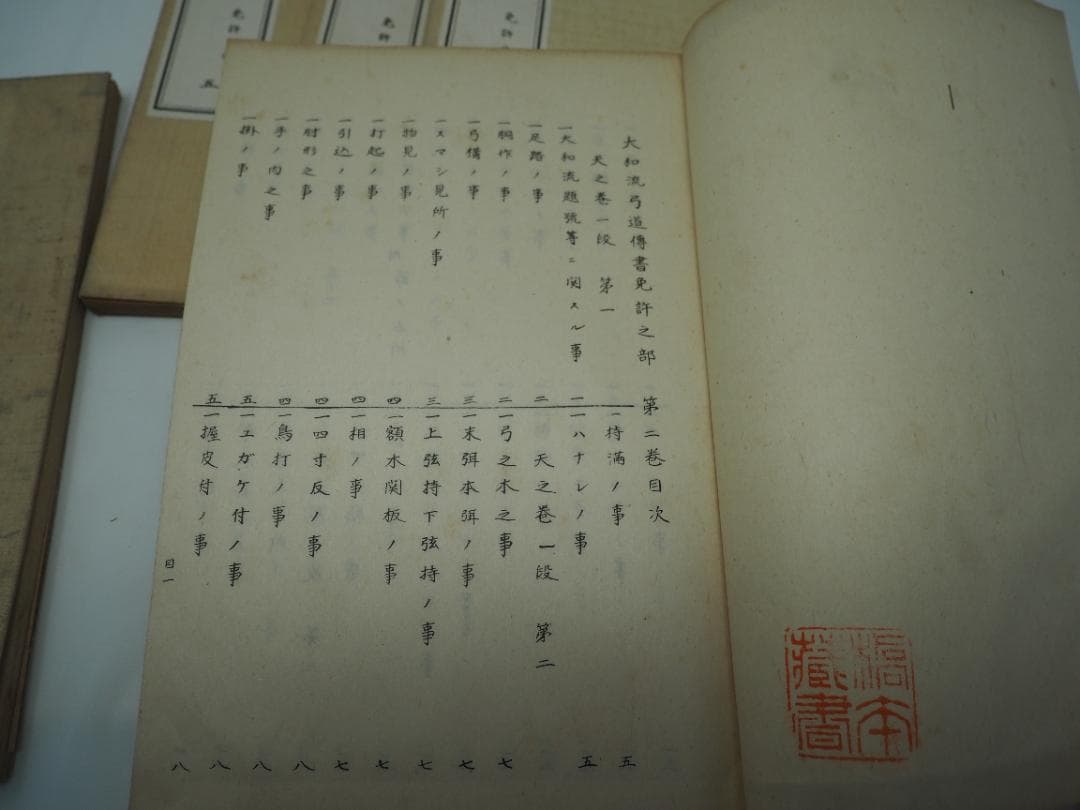 大和流弓道傳書免許之部 第二卷目次
天之卷一段 第一
一大和流題號等ニ関スル事 一
一足踏ノ事 二
一胴作ノ事 二
一弓構ノ事 三
一スマシ見所ノ事 三
一物見ノ事 四
一打起ノ事 四
一引込ノ事 四
一肘形之事 四
一手ノ内之事 五
一掛ノ事 五
一持滿ノ事 五
一ハナレノ事 五
天之卷一段 第二
一弓之木之事 七
一末弭本弭ノ事 七
一上弦持下弦持ノ事 七
一額木関板ノ事 七
一相ノ事 七
一四寸反ノ事 八
一鳥打ノ事 八
一ユガケ付ノ事 八
一握皮付ノ事 八
目一
藏書
免許
免許
免許
五